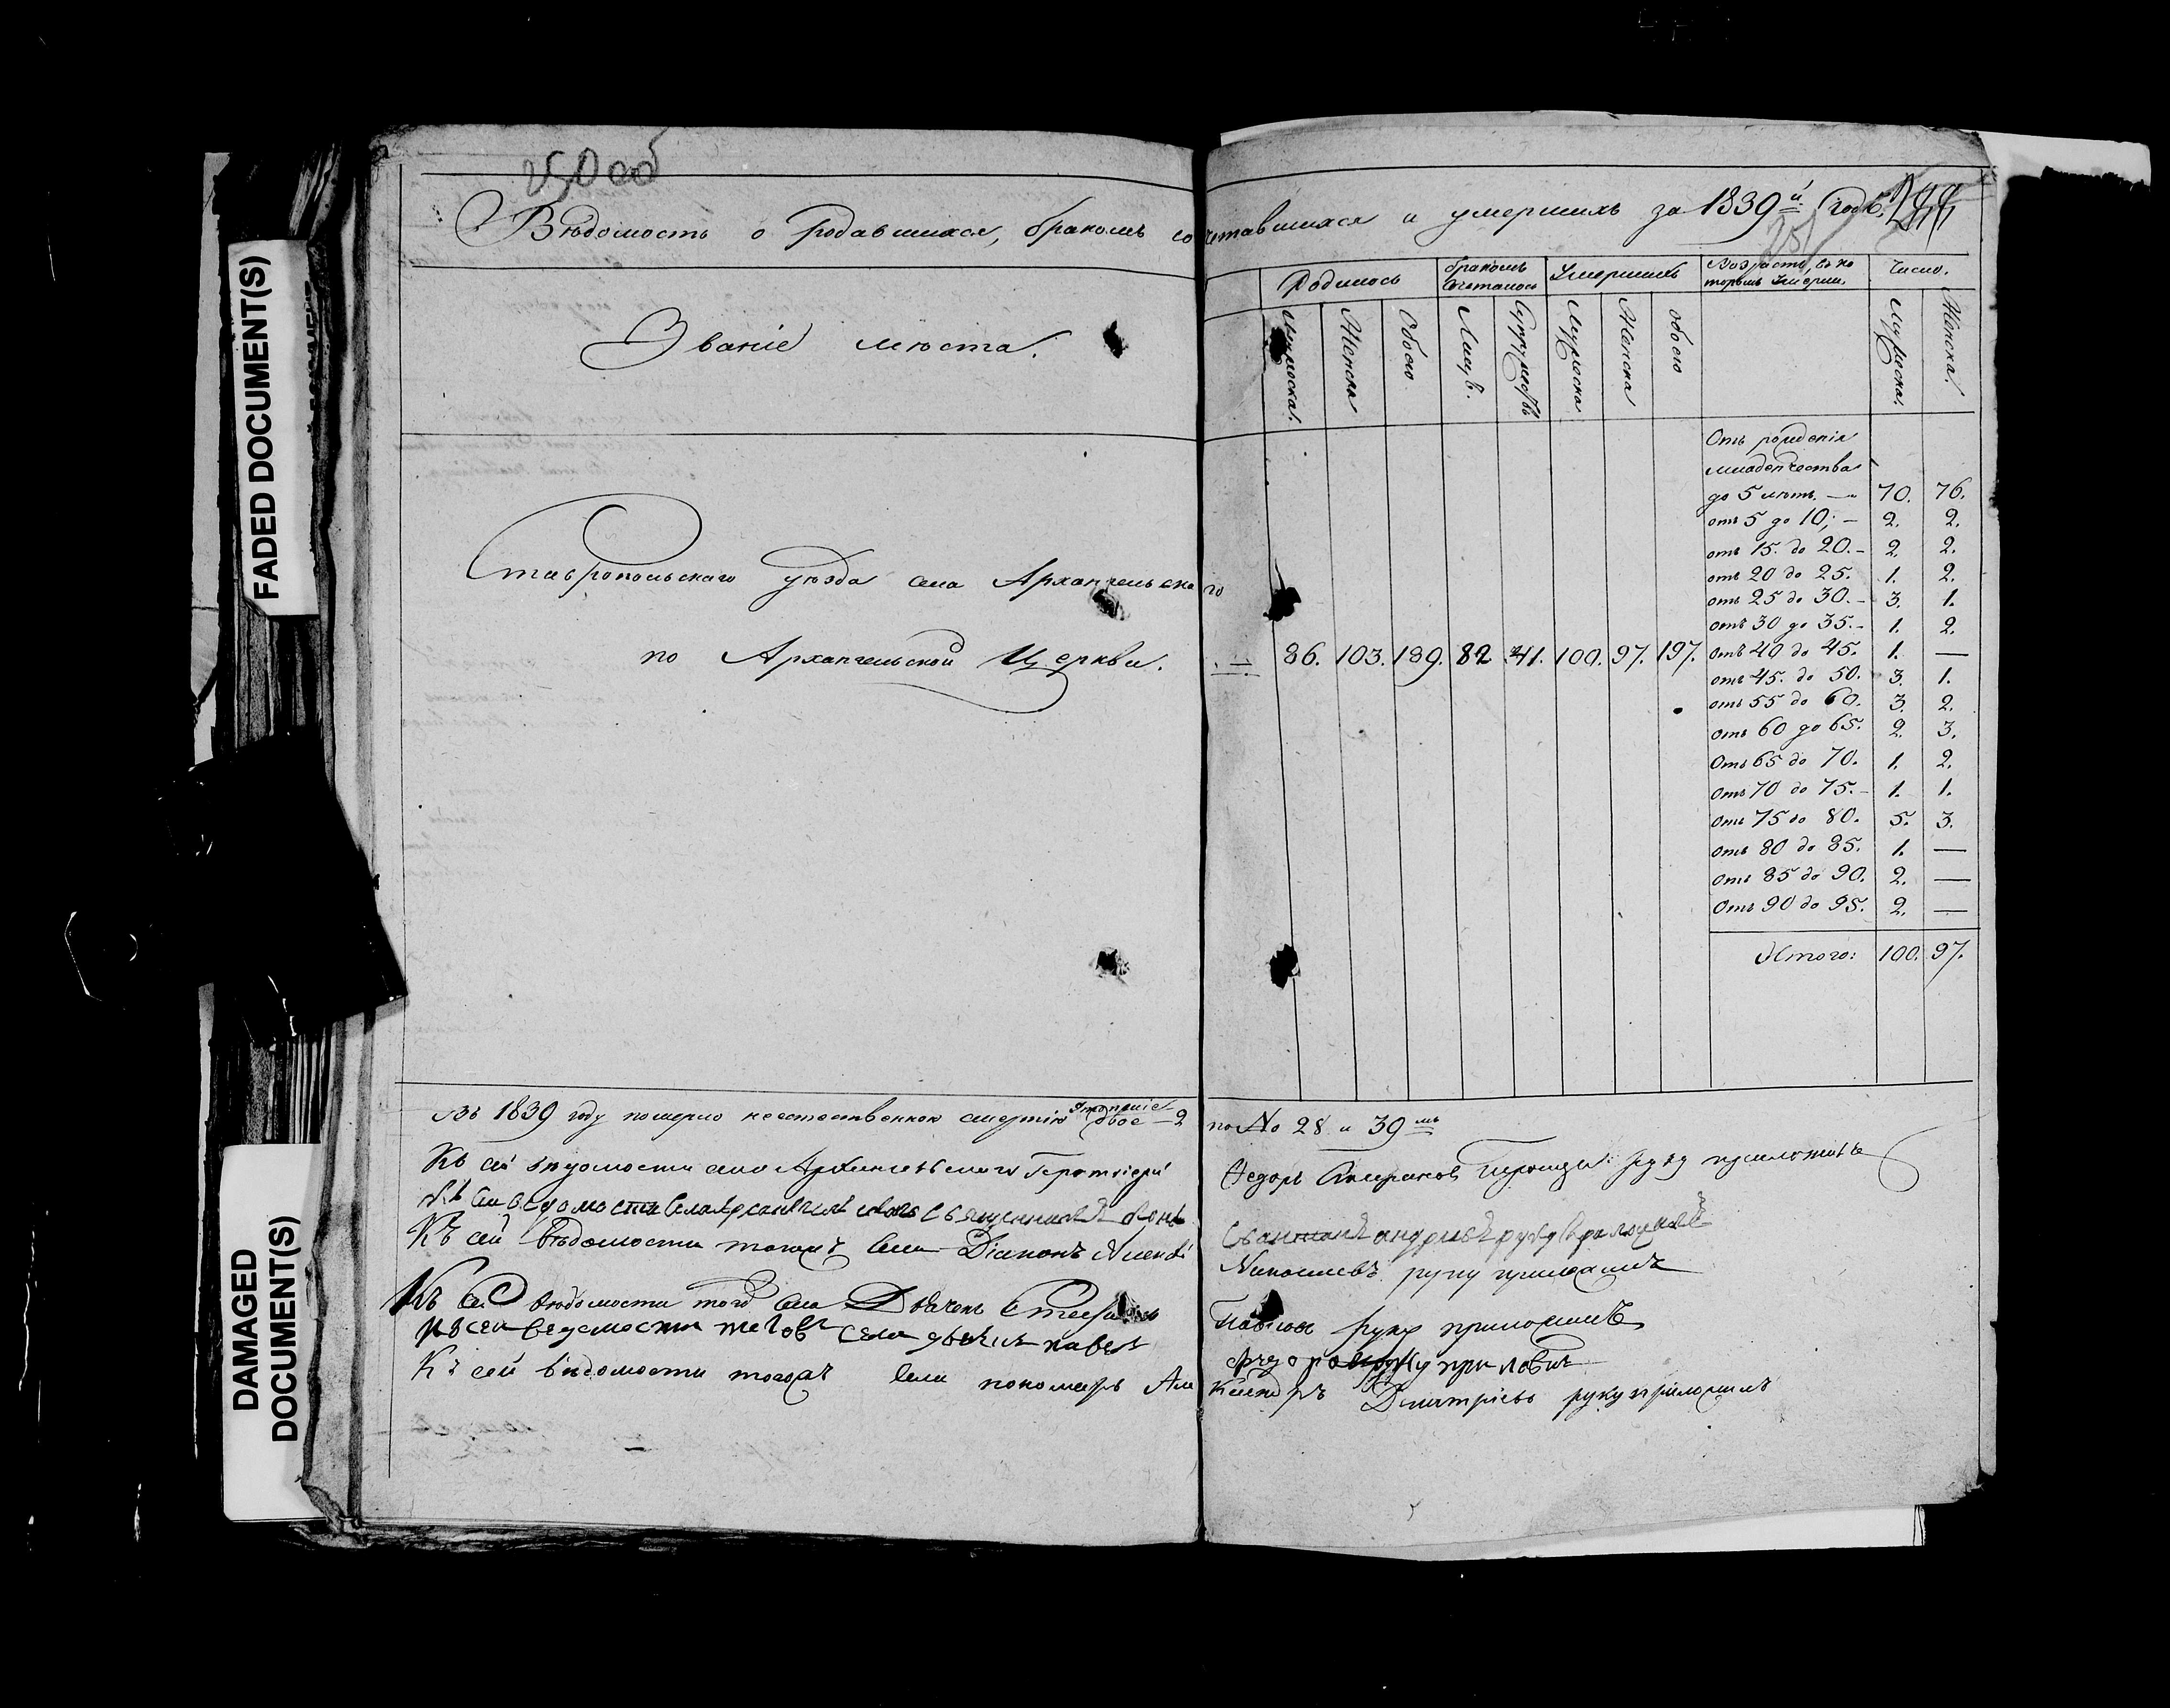 250 об
Вѣдомость о родавшихся, бракомъ сочетавшихся и умершихъ за 1839й годъ. 244
251
Званіе мѣста.
Родилось
бракомъ сочеталось
Умершихъ
Возрастъ, въ которомъ Умерли.
Число.
Мужеска.
Женска
Обоего
Лицъ.
Супружествъ
Мужеска
Женска
обоего
Мужеска.
Женска.
Ставропольскаго уѣзда села Архангельскаго
по Архангельской Церкви. 86. 103. 189. 82 41. 100. 97. 197.
Отъ рожденія
младенчества
до 5 лѣтъ. — 70. 76.
отъ 5 до 10; — 2. 2.
отъ 15. до 20. – 2 2.
отъ 20 до 25. 1. 2.
отъ 25 до 30. – 3. 1.
отъ 30 до 35. – 1. 2.
отъ 40 до 45. 1. —
отъ 45. до 50. 3. 1.
отъ 55 до 60. 3. 2.
отъ 60 до 65. 2. 3.
Отъ 65 до 70. 1. 2.
Отъ 70 до 75. – 1. 1.
Отъ 75 до 80. 5. 3.
Отъ 80 до 85. 1. —
Отъ 85 до 90. 2. —
Отъ 90 до 95. 2. —
Итого: 100. 97.
Въ 1839 году померло неестественною смертію утопшіе двое — 2 по No 28 и 39мъ
Къ сей вѣдомости села Архангельскаго Ѳедоръ руку приложилъ
Къ сей ведомости села священникъ андреевъ руку приложилъ
Къ сей вѣдомости тогожъ села Діаконъ руку приложилъ
Къ сей вѣдомости того села Дьячекъ Стефанъ Павловъ руку приложилъ
къ сей ведомости тогожъ села дьячикъ павелъ руку приложилъ
Къ сей вѣдомости тогожъ села пономарь Александръ Дмитріевъ руку приложилъ
FADED DOCUMENT(S)
DAMAGED DOCUMENT(S)